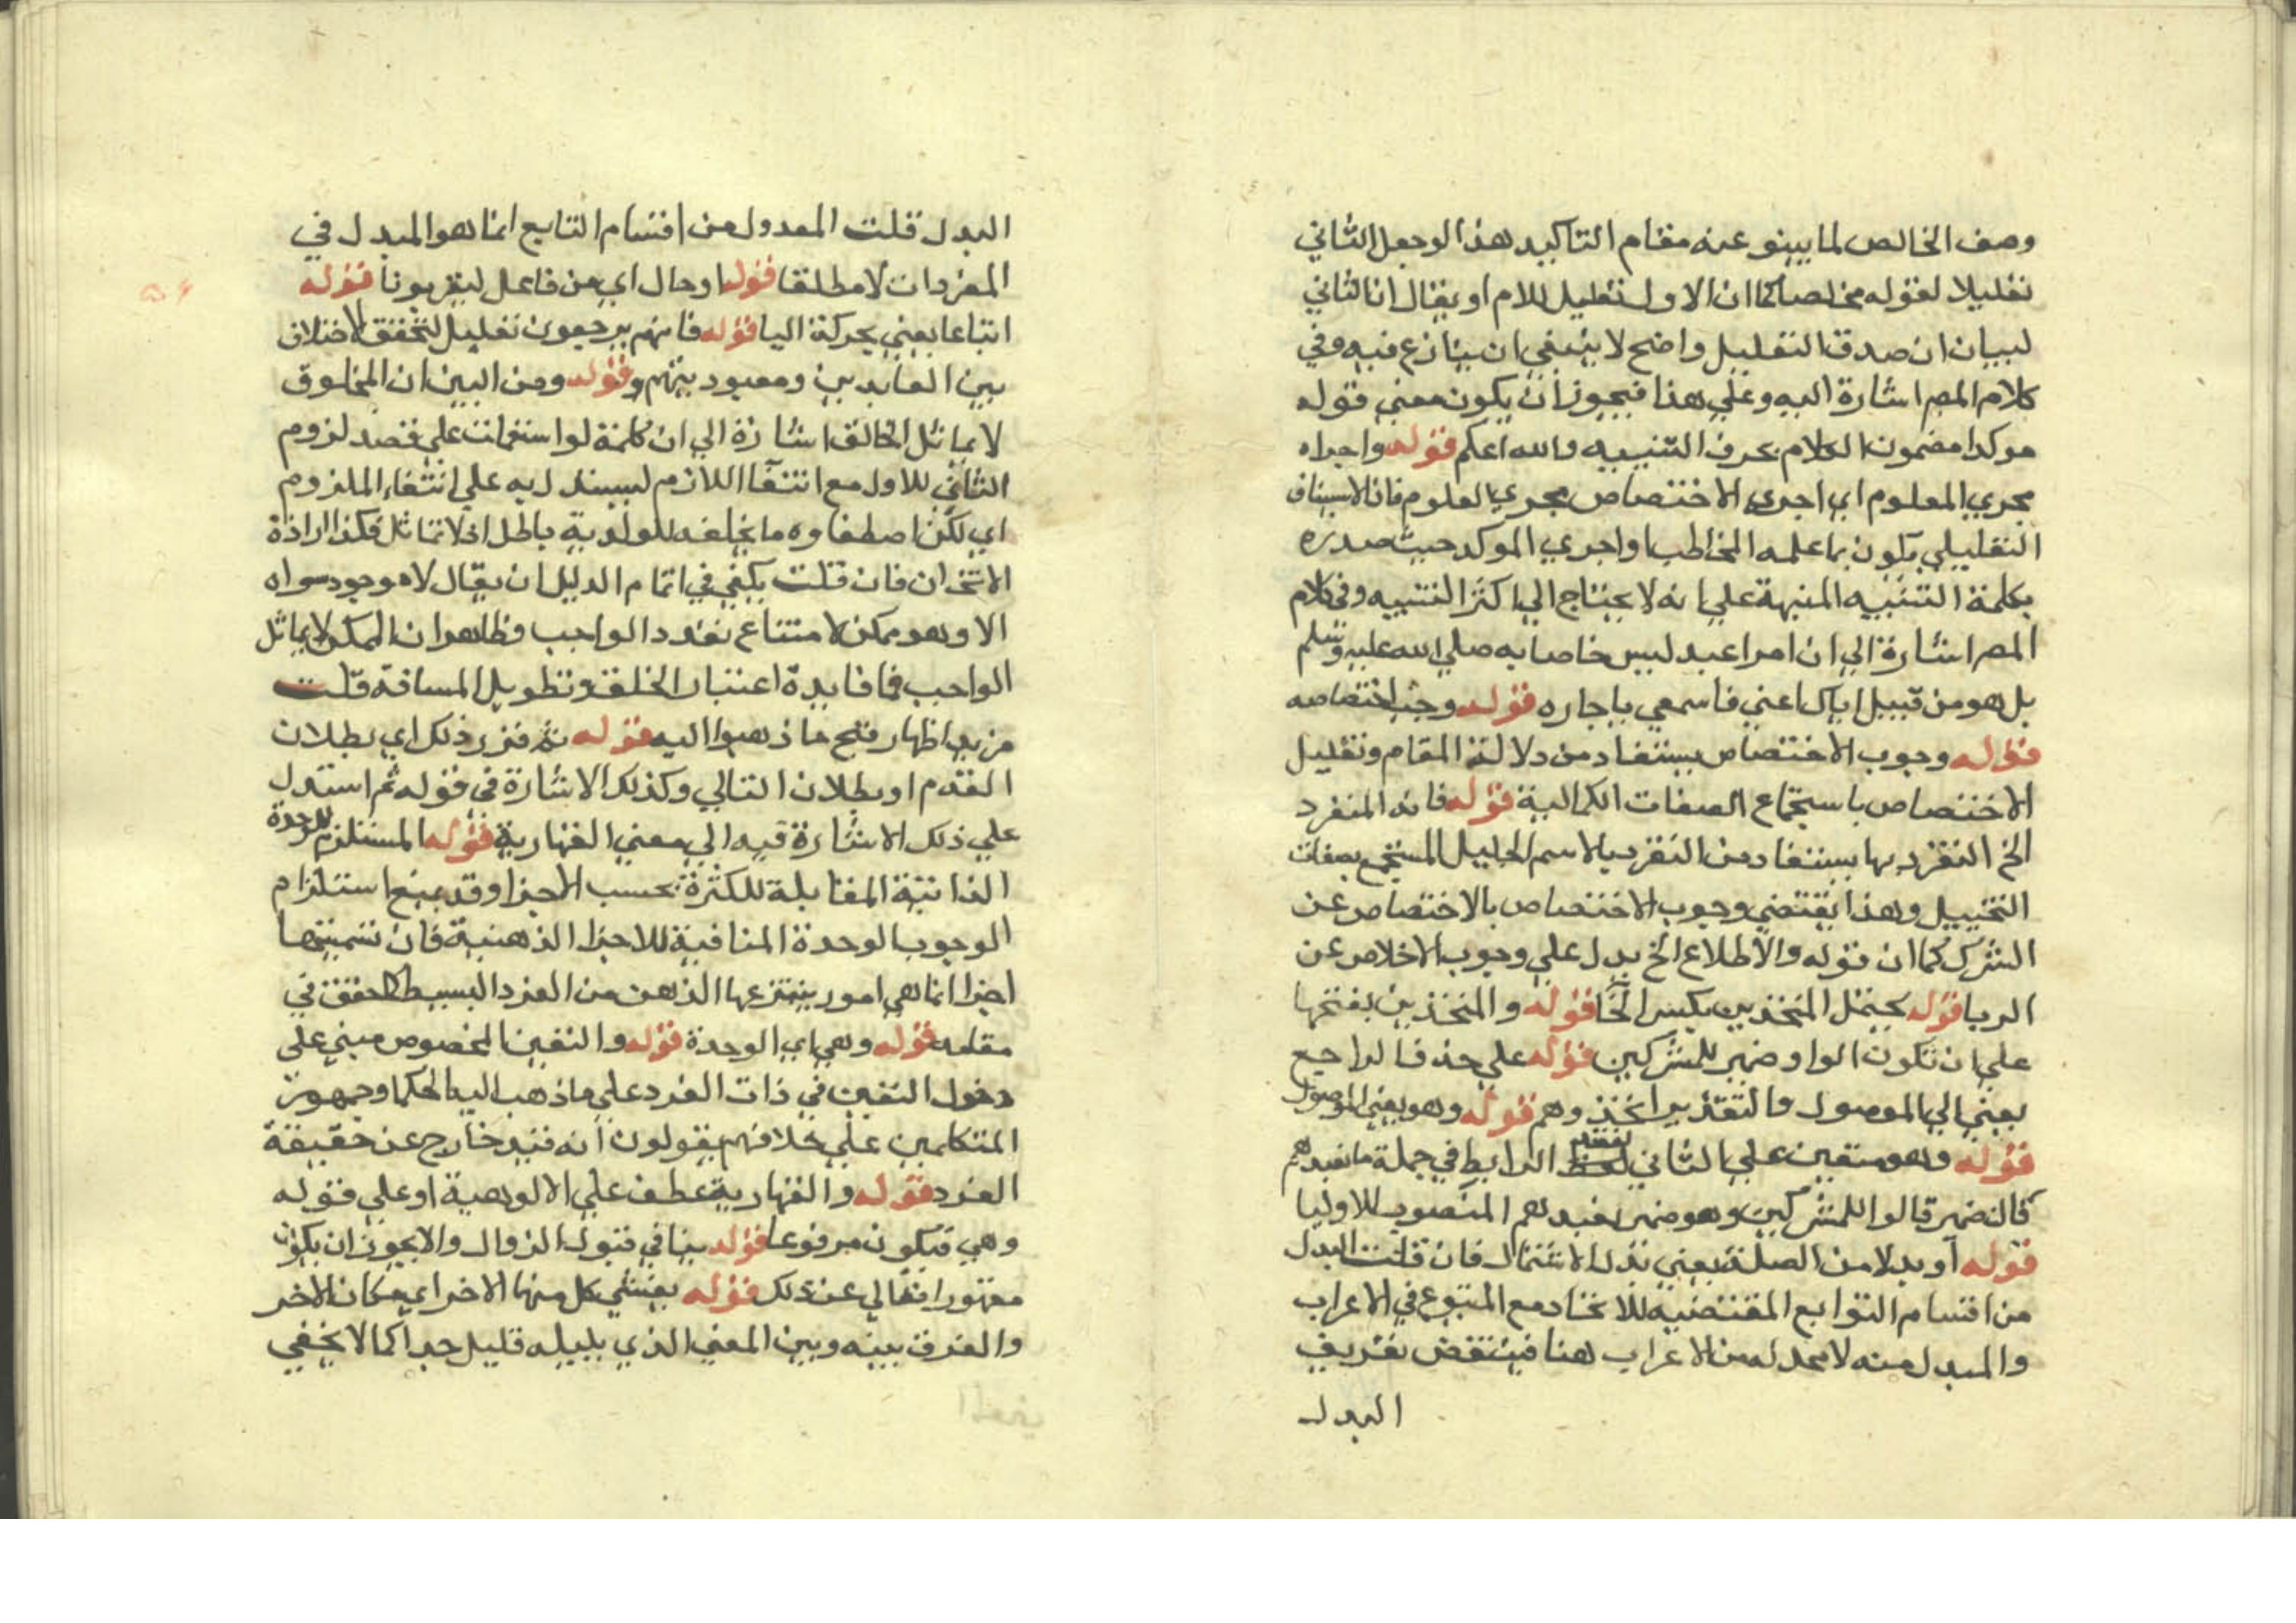 وصف الخالص لما ينبو عنه مقام التاكيد هذا الوجعل الثاني
تعليلا لقوله مخلصا كما ان الاول تعليل للامر او يقال انا الثاني
لبيان ان صدق التعليل واضح لا ينبغي ان ينازع فيه وفي
كلام المص اشارة اليه وعلي هذا فيجوز ان يكون معني قوله
موكدا مضمون الكلام بحرف التنبيه والله اعلم قوله واجراه
مجري المعلوم اي اجري الاختصاص مجري المعلوم فان الاستيناف
التعليلي يكون بما علمه المخاطب او اجري الموكد حيث صدره
بكلمة التنبيه المنبهة علي انه لا يحتاج الي اكثر التنبيه وفي كلام
المص اشارة الي ان امر اعبد ليس خاصا به صلي الله عليه وسلم
بل هو من قبيل اياك اعني فاسمعي يا جاره قوله وجب اختصاصه
قوله وجوب الاختصاص يستفاد من دلالة المقام وتعليل
الاختصاص باستجماع الصفات الكمالية قوله فانه المنفرد
الخ التفرد بها يستفاد من التفرد بالاسم الجليل المستجمع بصفات
وهذا يقتضي وجوب الاختصاص بالاختصاص عن
الشرك كما ان قوله والاطلاع الخ يدل علي وجوب الاخلاص عن
الريا قوله يحتمل المتخذين بكسر الخا قوله والمتخذين بفتحها
علي ان تكون الواو ضمير للمشركين قوله علي حذف الراجع
يعني الي الموصول والتقدير اتخذوهم قوله وهو يعني الموصول
قوله وهو متعين علي الثاني لفقد الرابط في جملة ما نعبدهم
فان ضمير قالوا للمشركين وهو ضمير نعبدهم المنصوب للاوليا
قوله او بدلا من الصلة يعني بدل الاشتمال فان قلت البدل
من اقسام التوابع المقتضيه للاتحاد مع المتبوع في الاعراب
والمبدل منه لا محل له من الاعراب هنا فينتقض تعريف
البدل
البدل قلت المعدول من اقسام التابع انما هو المبدل في
المفردات لا مطلقا قوله او حال اي من فاعل ليقربونا قوله
اتباعا يعني بحركة اليا قوله فانهم يرجعون تعليل لتحقق الاختلاف
بين العابدين ومعبود بينهم وقوله ومن البين ان المخلوق
لا يماثل الخالق اشارة الي ان كلمة لو استعملت علي قصد لزوم
الثاني للاول مع انتفا اللازم ليستدل به علي انتفاء الملزوم
اي لكن اصطفاوه ما يخلقه للولدية باطل اذ لا تماثل فكذا ارادة
الاتخاذ فان قلت يكفي في اتمام الدليل ان يقال لا موجود سواه
الا وهو ممكن لامتناع تعدد الواجب وظاهر ان الممكن لا يماثل
الواجب فما فايدة اعتبار الخلق وتطويل المسافة قلت
مزيد اظهار قبح ما ذهبوا اليه قوله ثم قرر ذلك اي بطلان
المقدم او بطلان التالي وكذلك الاشارة في قوله ثم استدل
علي ذلك الاشارة فيه الي معني القهارية قوله المستلزم للوحدة
الذاتية المقابلة للكثرة بحسب الاجزا وقد يمنع استلزام
الوجوب الوحدة المنافية للاجزا الذهنية فان تسميتها
اجزا انما هي امور ينتزعها الذهن من الفرد البسيط كما حقق في
مقامه قوله وهي اي الوحدة قوله والتعين المخصوص مبني علي
دخول التعين في ذات الفرد علي ما ذهب اليه الحكما وجمهور
المتكلمين علي خلافهم يقولون انه قيد خارج عن حقيقة
الفرد قوله والقهارية عطف علي الالوهية او علي قوله
وهي فيكون مرفوعا قوله ينافي قبول الزوال والا يجوز ان يكون
مقهورا تعالي عن ذلك قوله يغشي كل منهما الاخر اي مكان الاخر
والفرق بينه وبين المعني الذي يليه قليل جدا كما لا يخفي